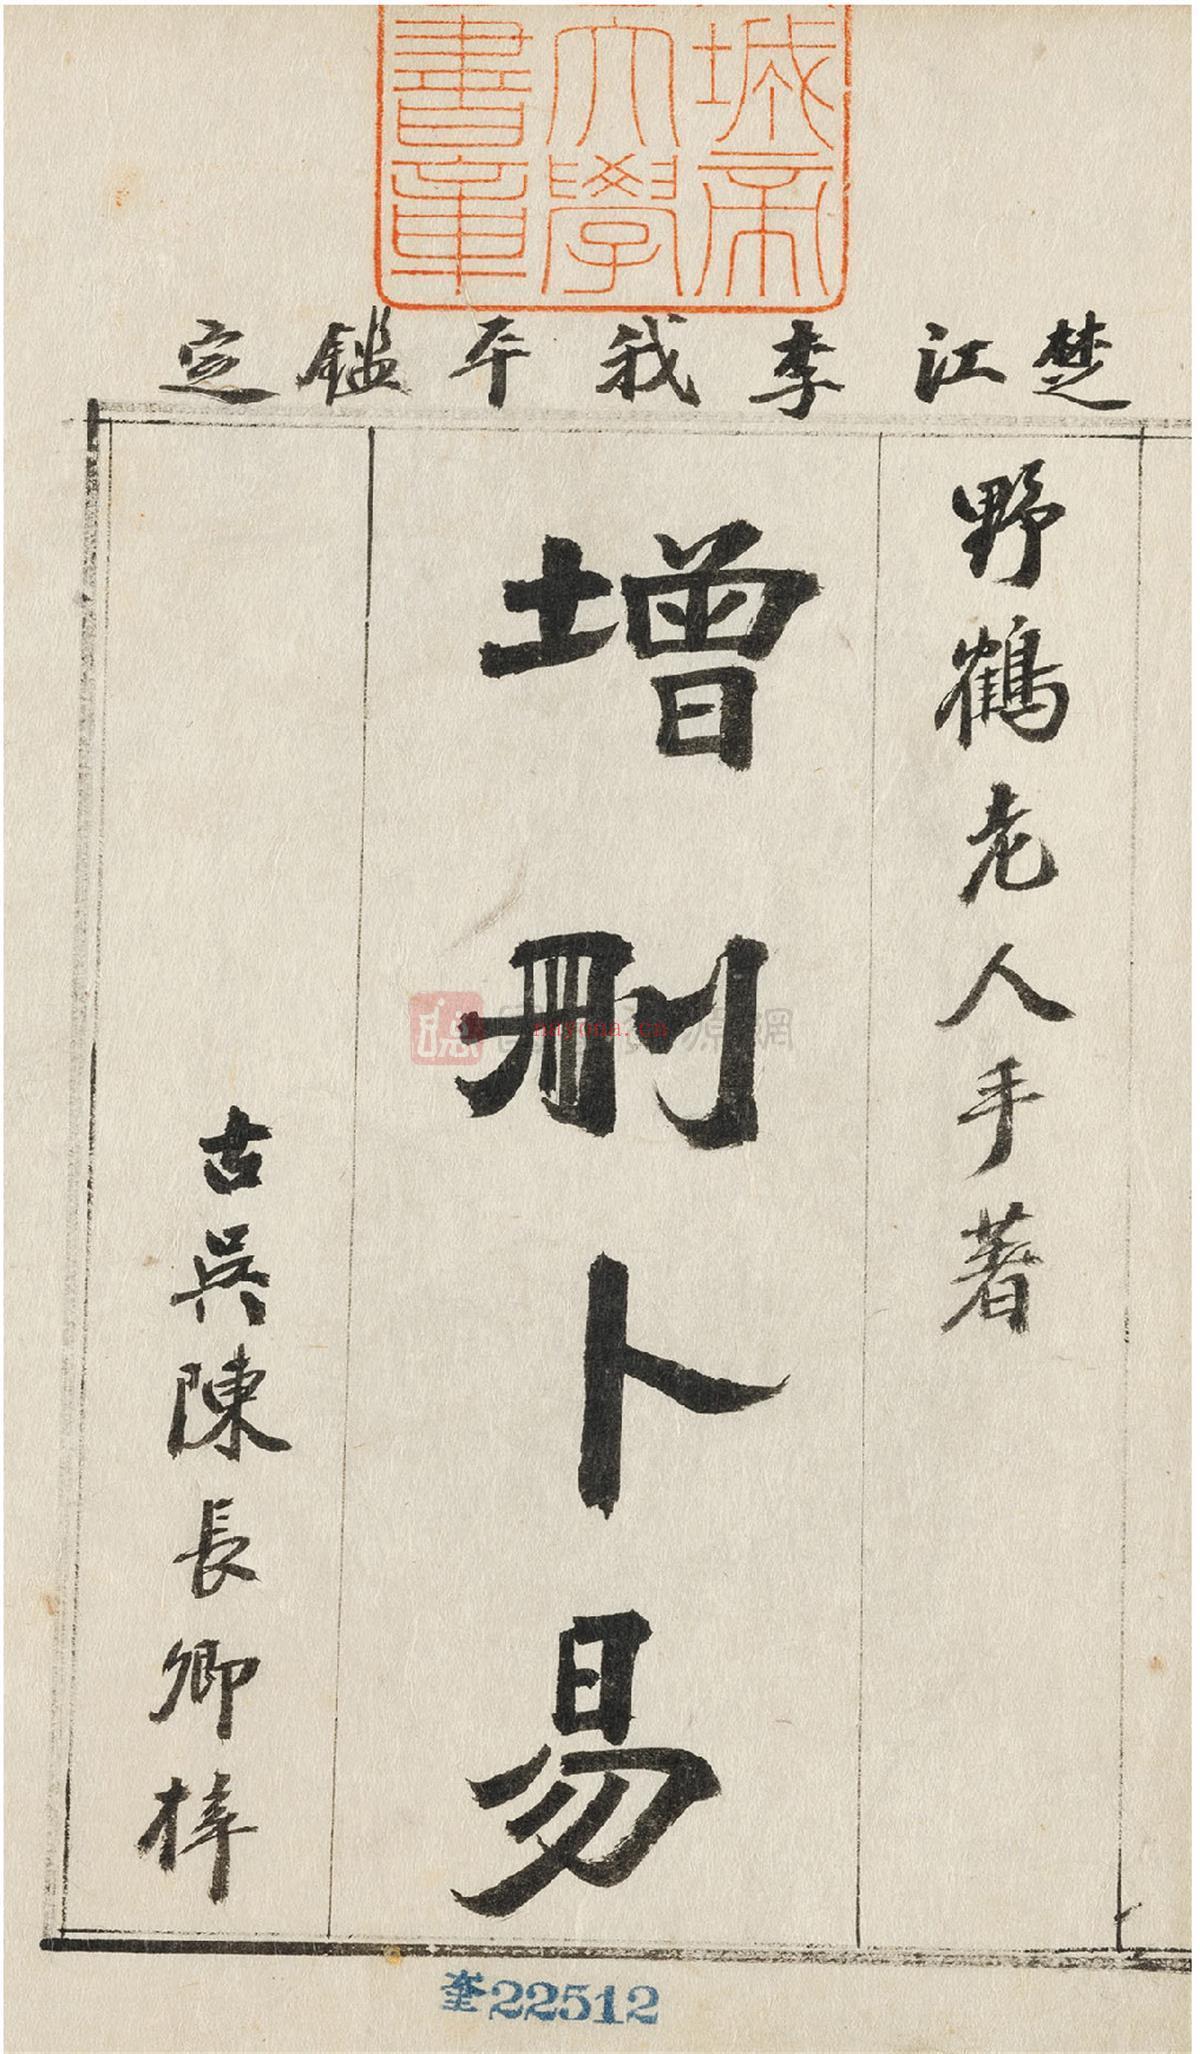 城帝
大學
書章
楚江李我平鑑定
野鶴老人手著
增刪卜易
古吳陳長卿梓
奎22512
nayona.cn